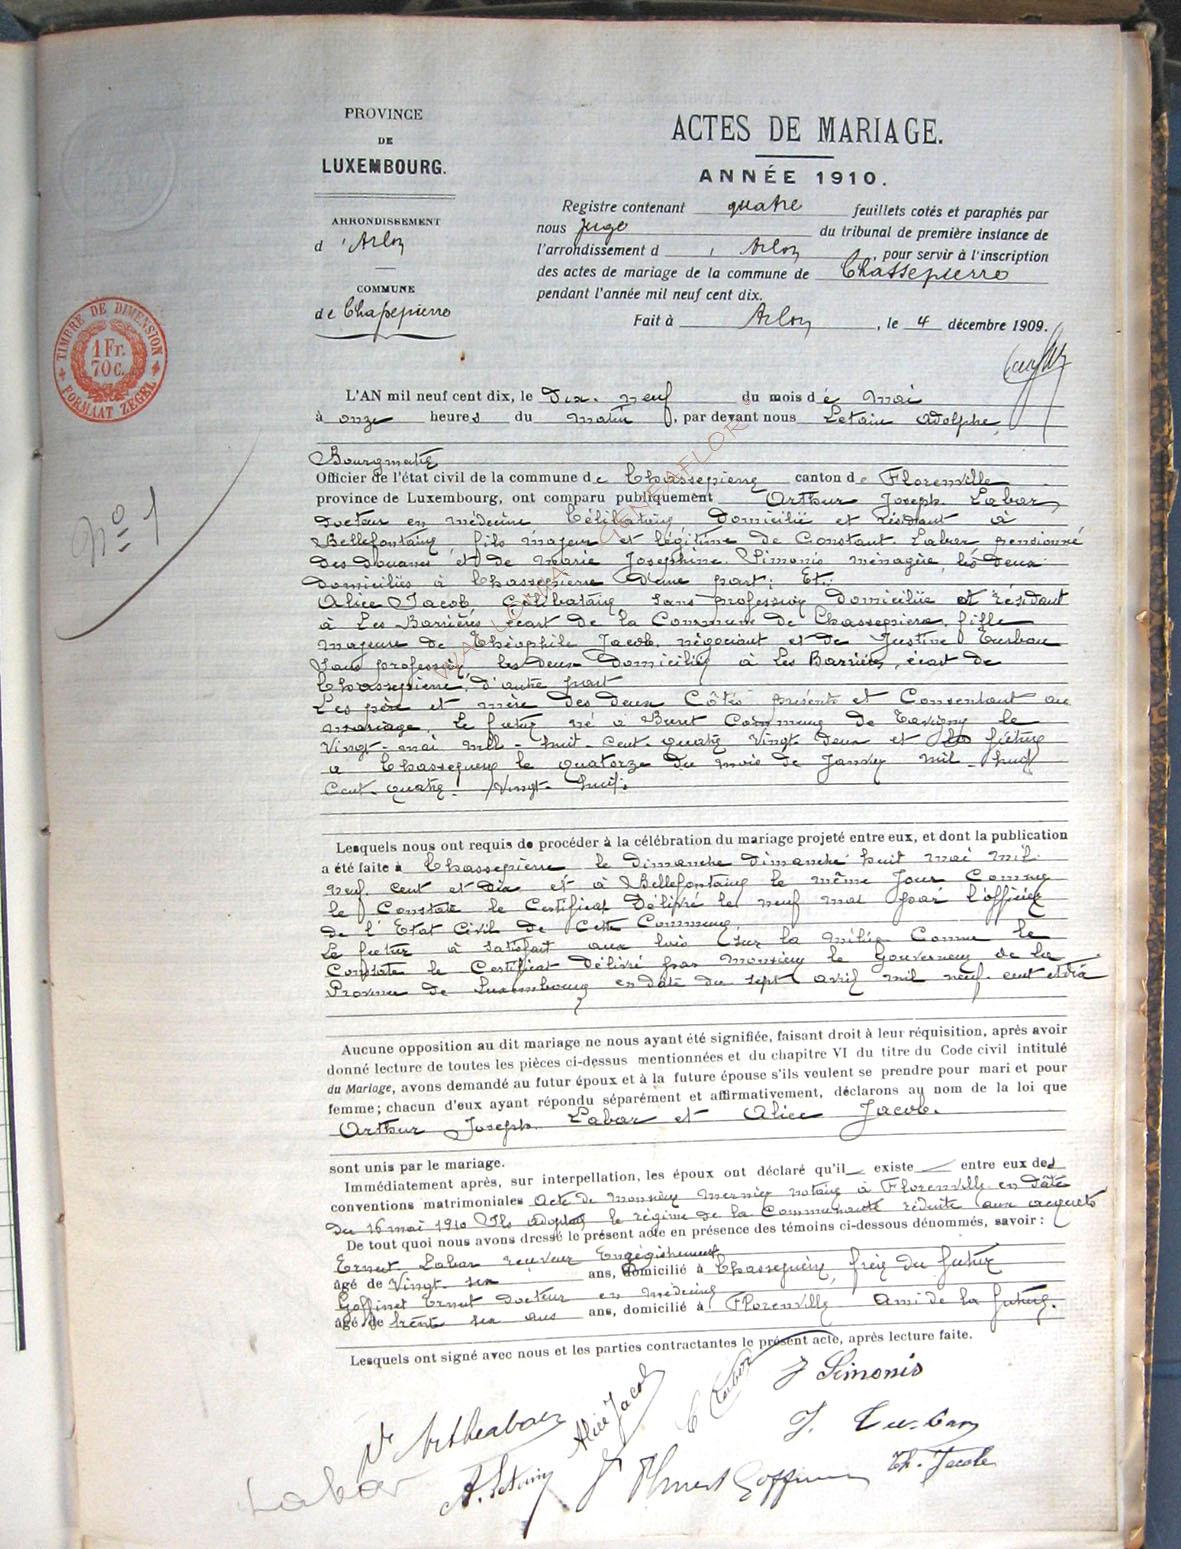 PROVINCE
DE
LUXEMBOURG.
ARRONDISSEMENT
d'Arlon
COMMUNE
de Chassepierre
TIMBRE DE DIMENSION
1 Fr.
70 c.
FORMAAT ZEGEL
ACTES DE MARIAGE.
ANNÉE 1910.
Registre contenant quatre feuillets cotés et paraphés par
nous juge du tribunal de première instance de
l'arrondissement d'Arlon, pour servir à l'inscription
des actes de mariage de la commune de Chassepierre
pendant l'année mil neuf cent dix.
Fait à Arlon, le 4 décembre 1909.
No 1
L'AN mil neuf cent dix, le dix-neuf du mois de mai
à onze heures du matin, par devant nous Letain Adolphe,
Bourgmestre
Officier de l'état civil de la commune de Chassepierre canton de Florenville
province de Luxembourg, ont comparu publiquement Arthur Joseph Labar,
docteur en médecine, Célibataire, domicilié et résidant à
Bellefontaine, fils majeur et légitime de Constant Labar pensionné
des douanes et de Marie Josephine Simonis ménagère, les deux
domiciliés à Chassepierre d'une part: Et:
Alice Jacob, célibataire sans profession domiciliée et résidant
à Les Barrières écart de la Commune de Chassepierre, fille
majeure de Théophile Jacob, négociant et de Justine Turbau
sans profession les deux domiciliés à Les Barrières, écart de
Chassepierre, d'autre part
Les père et mère des deux Côtés présents et Consentant au
mariage, le futur né à Buret Commune de Tavigny le
vingt-mai mil-huit-cent-quatre vingt-deux et la future
à Chassepierre le quatorze du mois de Janvier mil-huit
cent-quatre-vingt-huit;
Lesquels nous ont requis de procéder à la célébration du mariage projeté entre eux, et dont la publication
a été faite à Chassepierre le dimanche dimanche huit mai mil
neuf cent et dix et à Bellefontaine le même Jour Comme
le Constate le Certificat Délivré le neuf mai par l'officier
de l'Etat Civil de Cette Commune
Le futur à satisfait aux lois sur la milice Comme le
Constate le Certificat délivré par Monsieur le Gouverneur de la
Province de Luxembourg en date du sept avril mil neuf cent et dix
Aucune opposition au dit mariage ne nous ayant été signifiée, faisant droit à leur réquisition, après avoir
donné lecture de toutes les pièces ci-dessus mentionnées et du chapitre VI du titre du Code civil intitulé
du Mariage, avons demandé au futur époux et à la future épouse s'ils veulent se prendre pour mari et pour
femme; chacun d'eux ayant répondu séparément et affirmativement, déclarons au nom de la loi que
Arthur Joseph Labar et Alice Jacob.
sont unis par le mariage.
Immédiatement après, sur interpellation, les époux ont déclaré qu'il existe entre eux des
conventions matrimoniales Acte de Monsieur Mernier notaire à Florenville en date
du 16 mai 1910 Ils adoptent le régime de la Communauté réduite aux acquets
De tout quoi nous avons dressé le présent acte en présence des témoins ci-dessous dénommés, savoir:
Ernest Labar receveur Enregistrement
âgé de Vingt-six ans, domicilié à Chassepierre, frère du futur
Goffinet Ernest docteur en médecine
âgé de trente six ans ans, domicilié à Florenville Ami de la future.
Lesquels ont signé avec nous et les parties contractantes le présent acte, après lecture faite.
Alice Jacob
C Labar
J Simonis
Dr Arth Labar
J. Turbau
A. Letain
Dr Ernest Goffinet
Th. Jacob
Labar